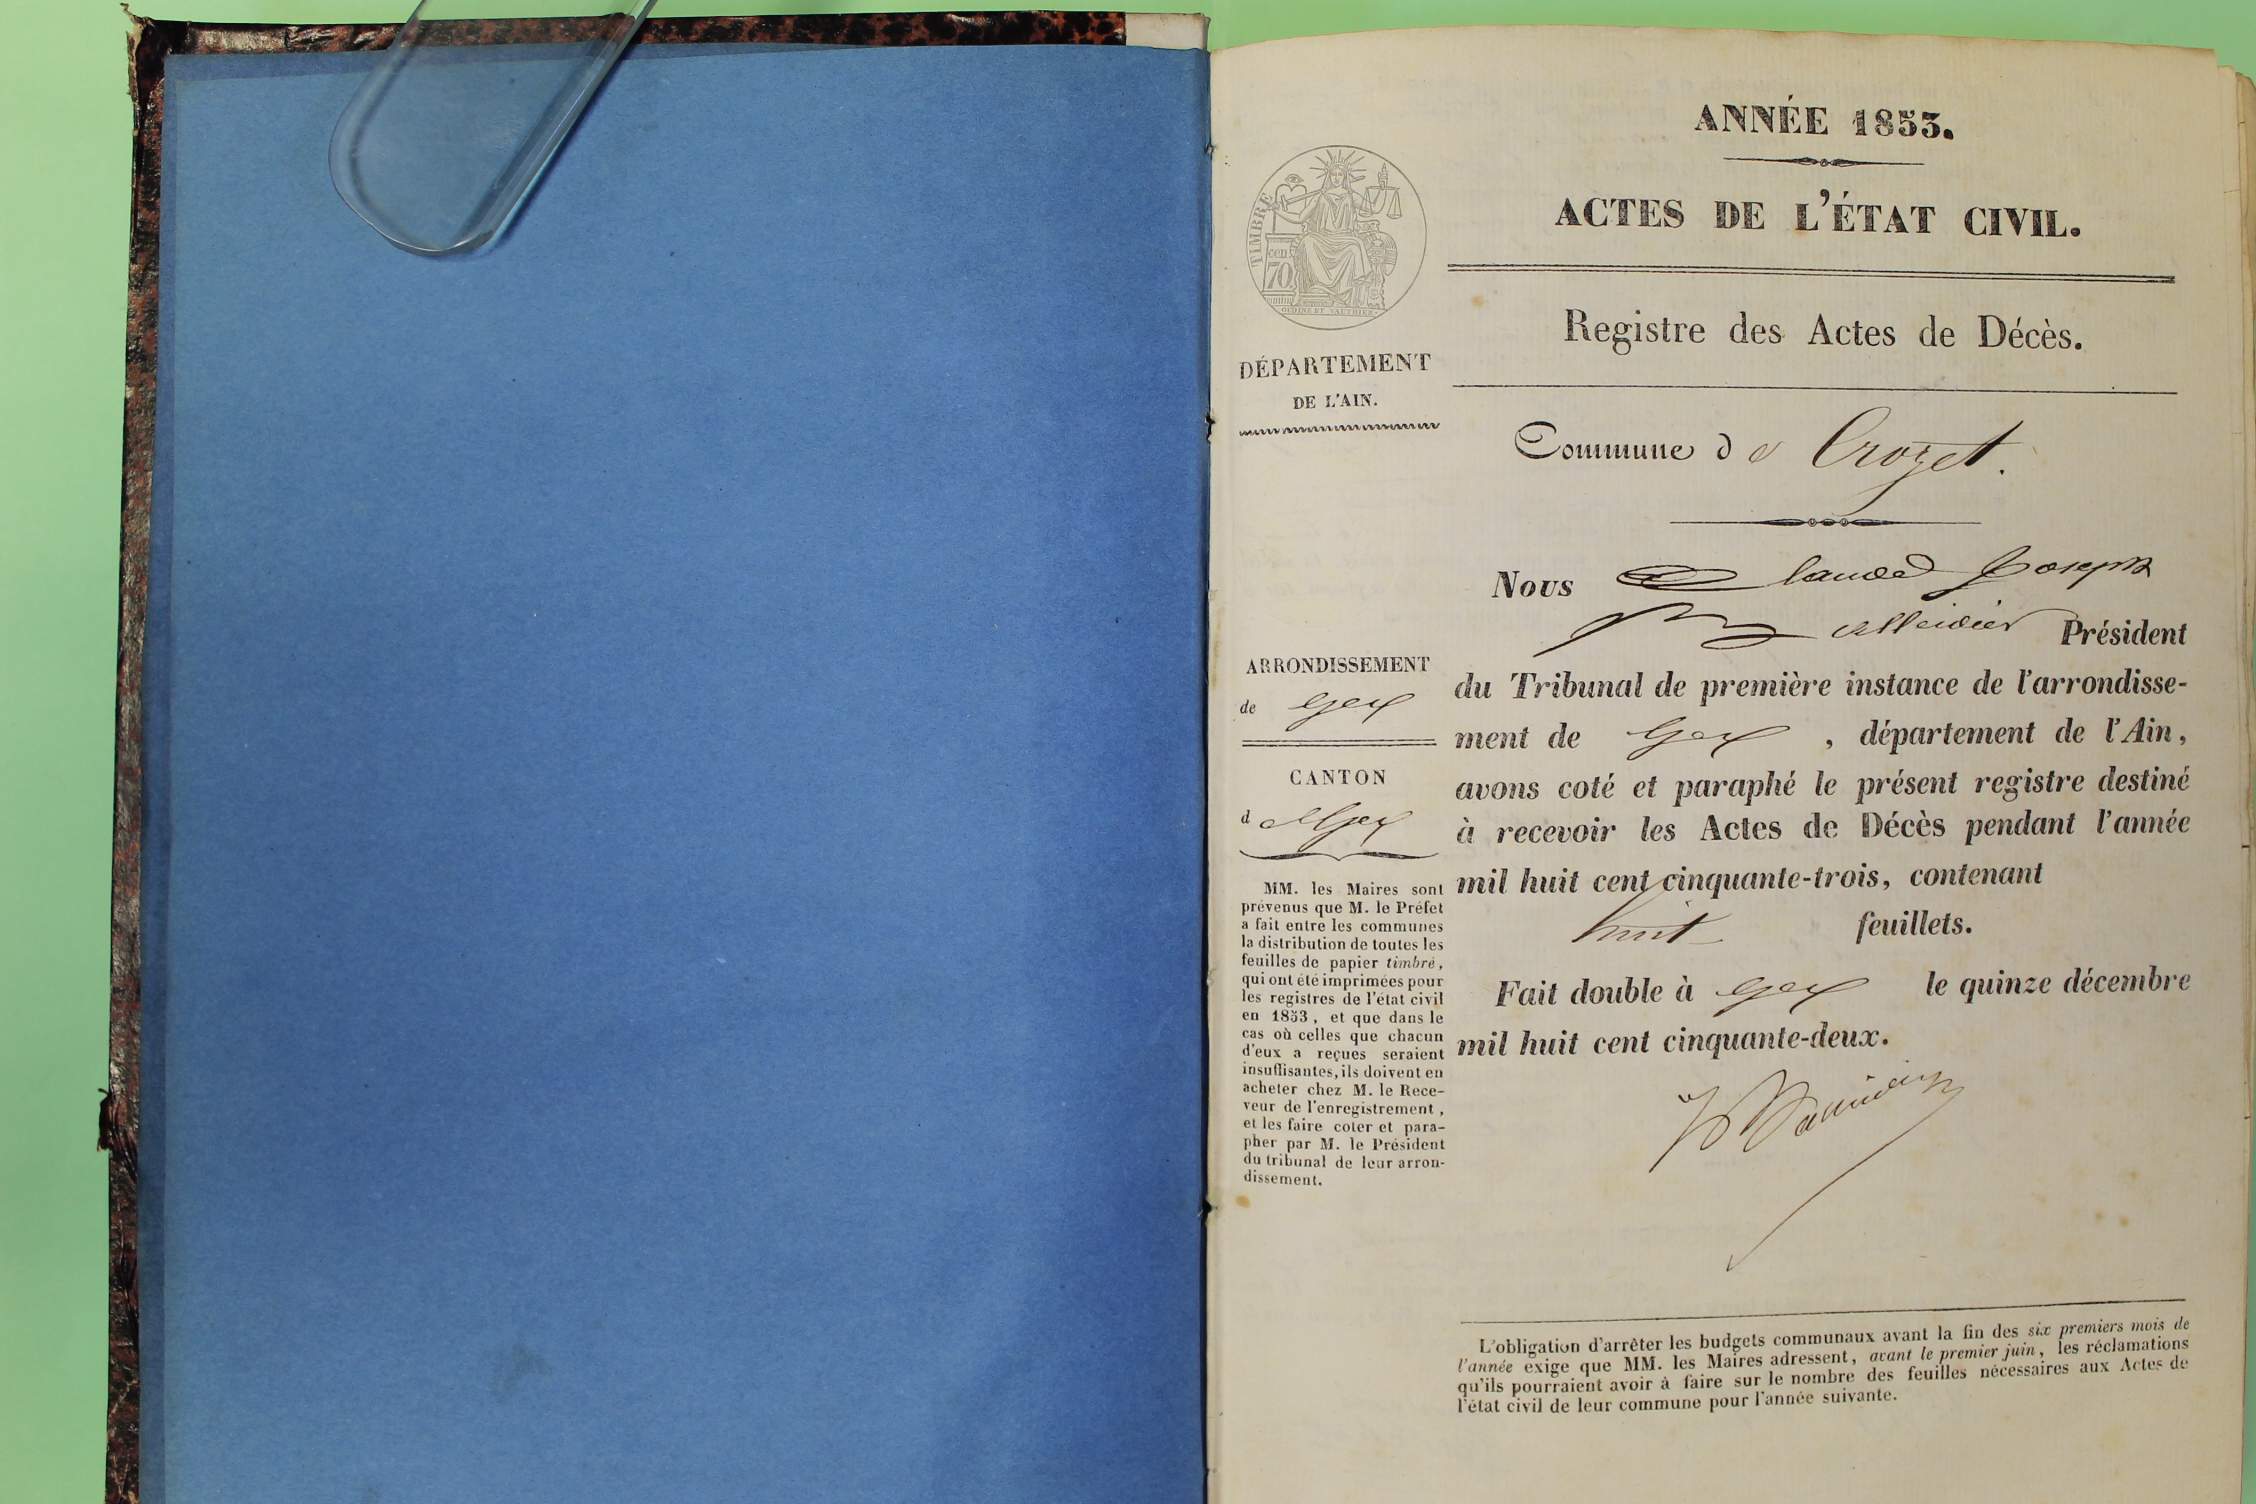 ANNÉE 1853.
ACTES DE L'ÉTAT CIVIL.
TIMBRE
cen
70
OUDINÉ ET GAUTHIER
Registre des Actes de Décès.
DÉPARTEMENT
DE L'AIN.
Commune de Crozet.
Nous Claude Joseph
Président
ARRONDISSEMENT
de Gex
CANTON
de Gex
du Tribunal de première instance de l'arrondisse-
ment de Gex, département de l'Ain,
avons coté et paraphé le présent registre destiné
à recevoir les Actes de Décès pendant l'année
mil huit cent cinquante-trois, contenant
huit feuillets.
Fait double à Gex le quinze décembre
mil huit cent cinquante-deux.
MM. les Maires sont
prévenus que M. le Préfet
a fait entre les communes
la distribution de toutes les
feuilles de papier timbré,
qui ont été imprimées pour
les registres de l'état civil
en 1853, et que dans le
cas où celles que chacun
d'eux a reçues seraient
insuffisantes, ils doivent en
acheter chez M. le Rece-
veur de l'enregistrement,
et les faire coter et para-
pher par M. le Président
du tribunal de leur arron-
dissement.
L'obligation d'arrêter les budgets communaux avant la fin des six premiers mois de
l'année exige que MM. les Maires adressent, avant le premier juin, les réclamations
qu'ils pourraient avoir à faire sur le nombre des feuilles nécessaires aux Actes de
l'état civil de leur commune pour l'année suivante.